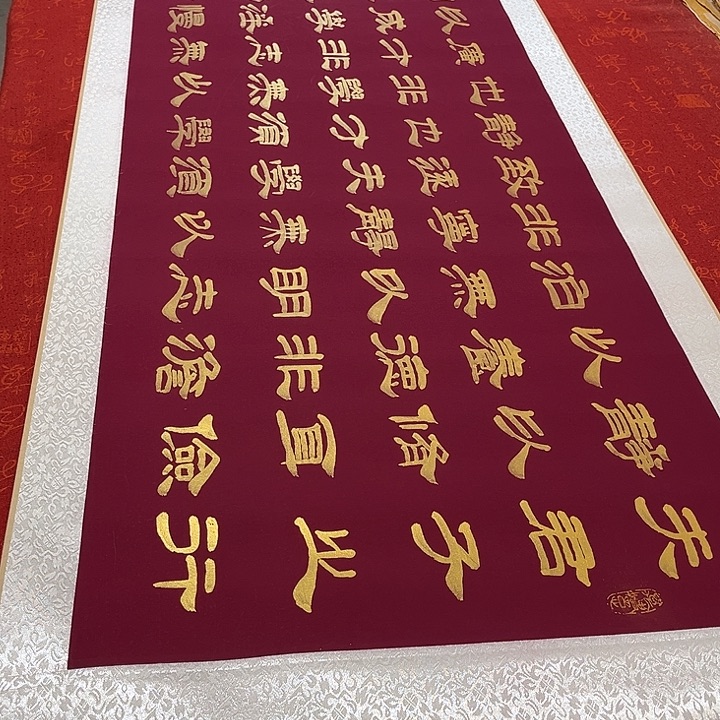 夫君子之行
靜以修身儉
以養德非澹
泊無以明志
非寧靜無以
致遠夫學須
靜也才須學
也非學無以
廣才非志無
以成學淫慢